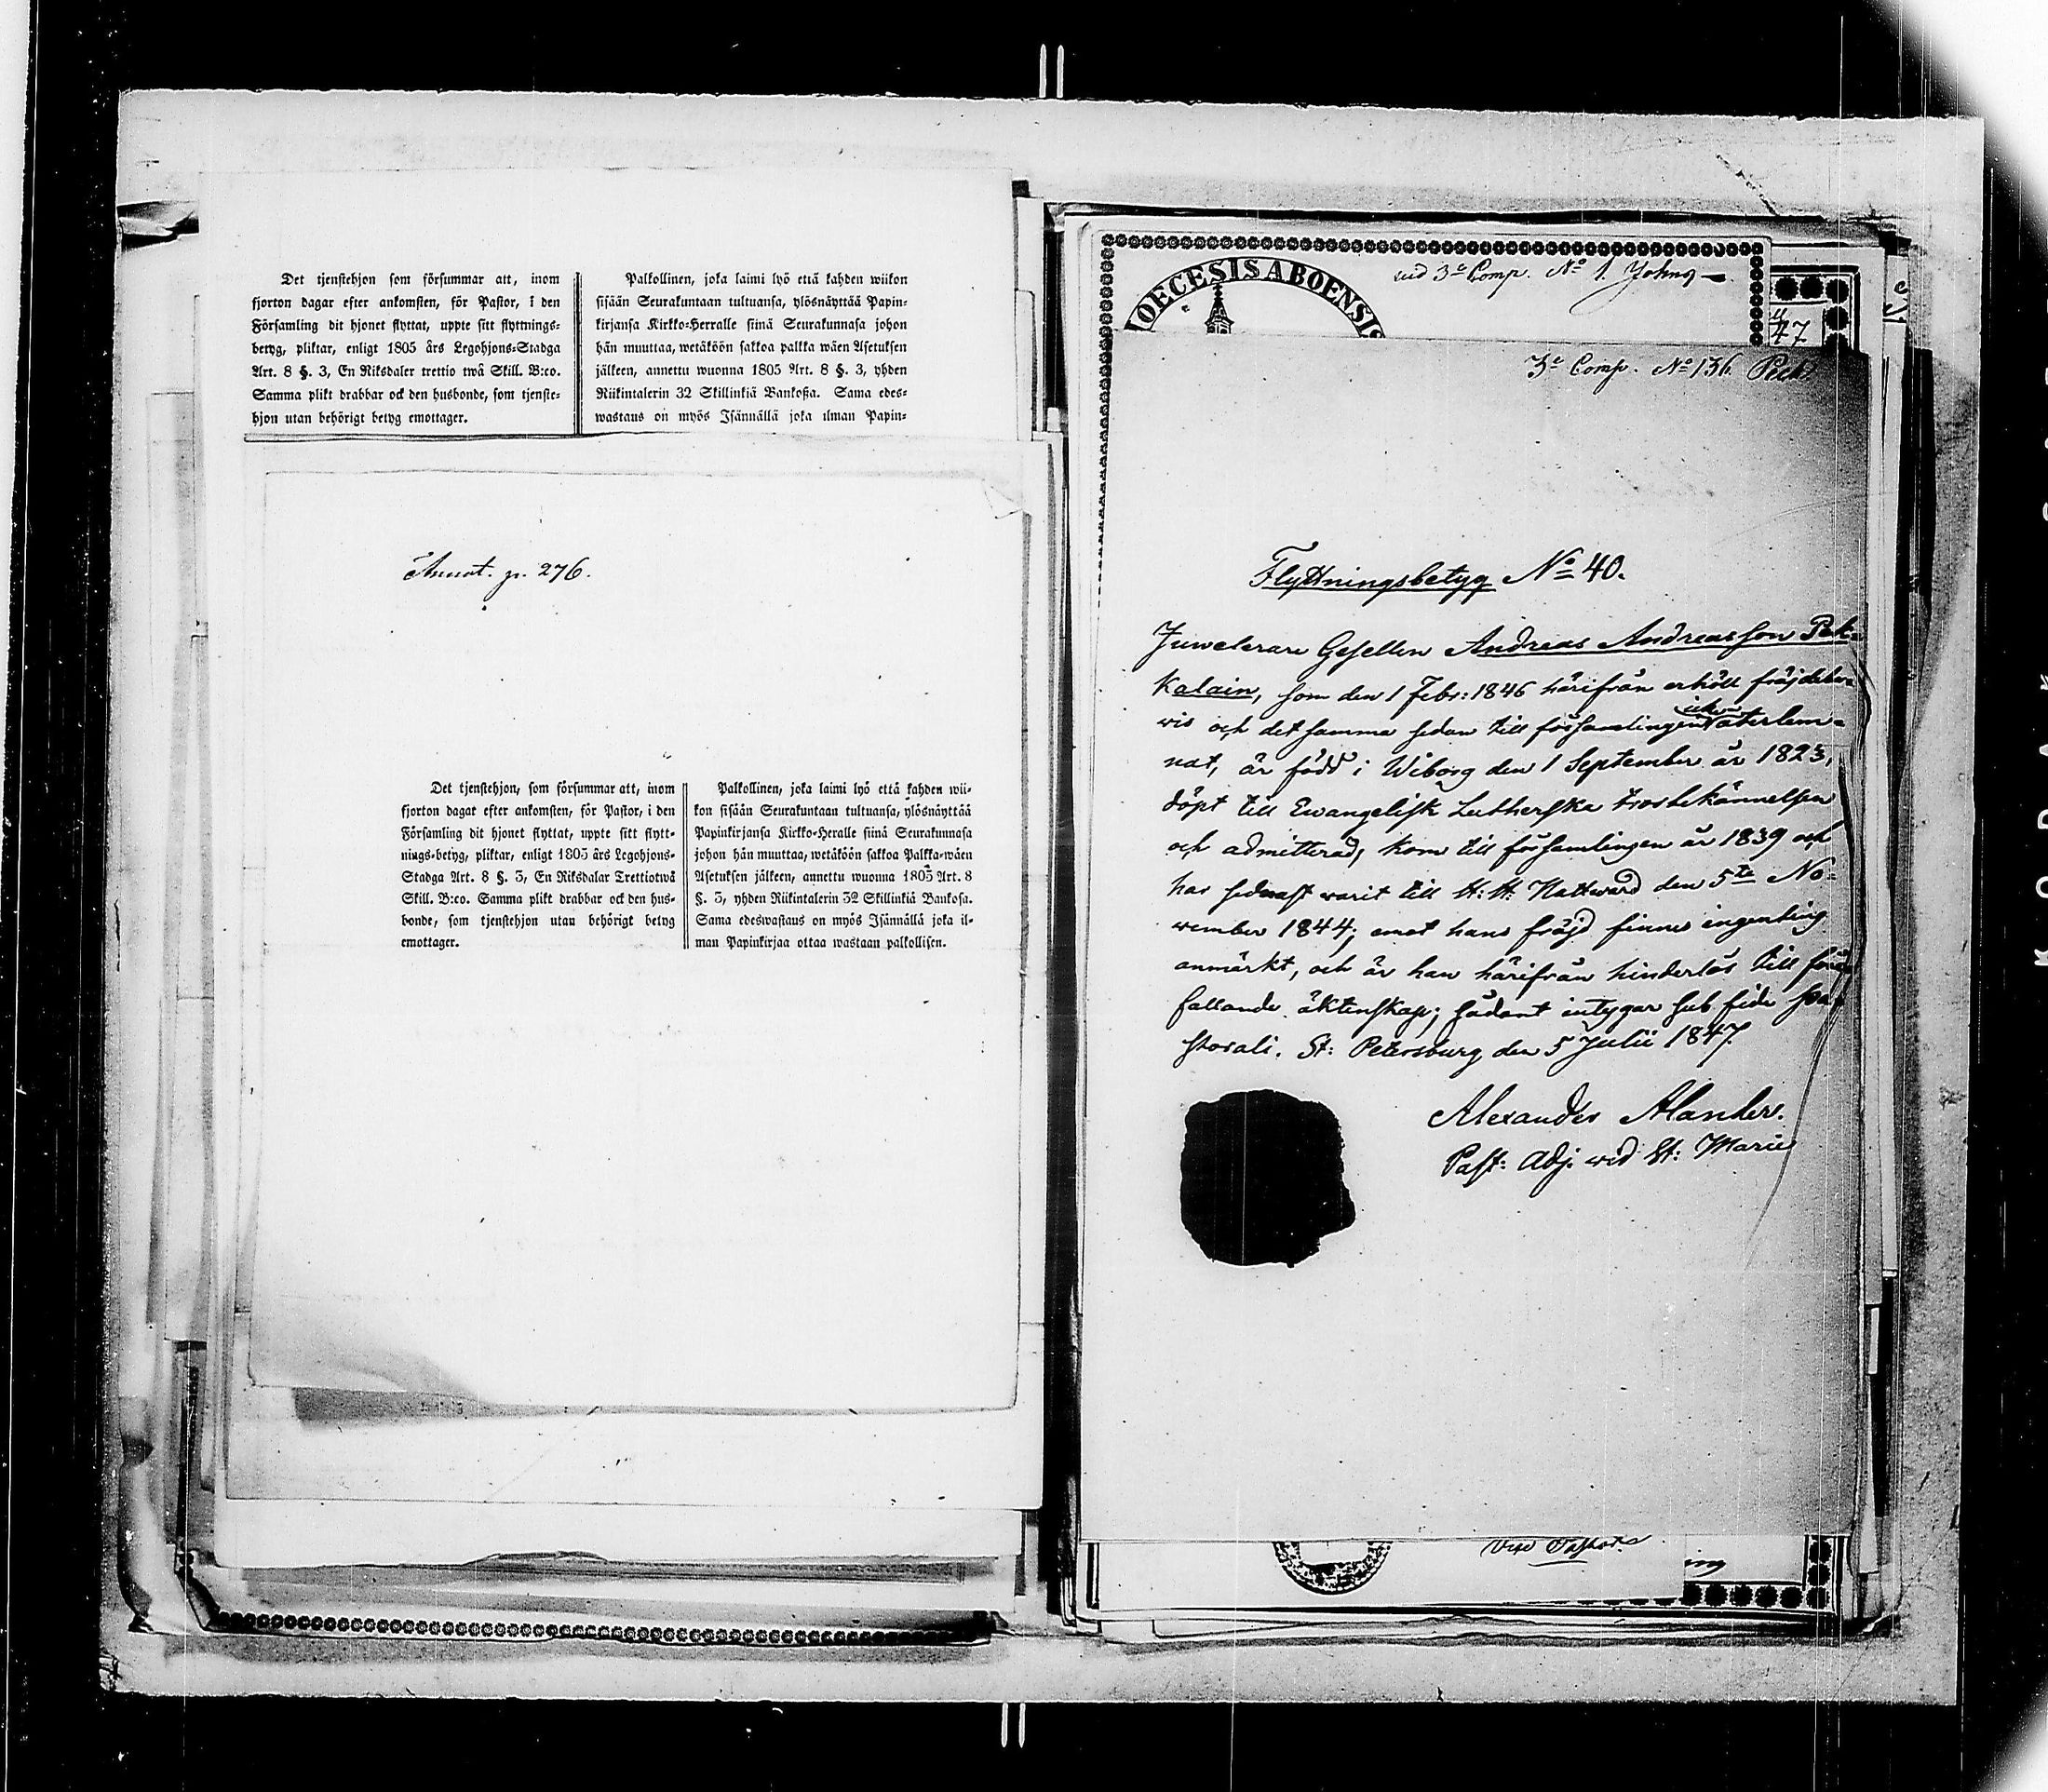 Det tjenstehjon som försummar att, inom
fjorton dagar efter ankomsten, för Pastor, i den
Församling dit hjonet flyttat, uppte sitt flyttnings-
betyg, pliktar, enligt 1805 års Legohjons-Stadga
Art. 8 §. 3, En Riksdaler trettio twå Skill. B:co.
Samma plikt drabbar ock den husbonde, som tjenste-
hjon utan behörigt betyg emottager.
Palkollinen, joka laimi lyö että kahden wiikon
sisään Seurakuntaan tultuansa, ylösnäyttää Papin-
kirjansa Kirkko-Herralle siinä Seurakunnasa johon
hän muuttaa, wetäköön sakkoa palkka wäen Asetuksen
jälkeen, annettu wuonna 1805 Art. 8 §. 3, yhden
Riikintalerin 32 Skillinkiä Bankoßa. Sama edes-
wastaus on myös Isännällä joka ilman Papin-
Annot. p. 276.
Det tjenstehjon, som försummar att, inom
fjorton dagar efter ankomsten, för Pastor, i den
Församling dit hjonet flyttat, uppte sitt flytt-
nings-betyg, pliktar, enligt 1805 års Legohjons-
Stadga Art. 8 §. 3, En Riksdalar Trettiotwå
Skill. B:co. Samma plikt drabbar ock den hus-
bonde, som tjenstehjon utan behörigt betyg
emottager.
Palkollinen, joka laimi lyö että kahden wii-
kon sisään Seurakuntaan tultuansa, ylösnäyttää
Papinkirjansa Kirkko-Heralle siinä Seurakunnasa
johon hän muuttaa, wetäköön sakkoa Palkka-wäen
Asetuksen jälkeen, annettu wuonna 1805 Art. 8
§. 3, yhden Riikintalerin 32 Skillinkiä Bankosa.
Sama edeswastaus on myös Isännällä joka il-
man Papinkirjaa ottaa wastaan palkollisen.
OECESIS ABOENSIS
3e Comp. No 1
47
3e Comp. No 136
Flyttningsbetyg No 40.
Juwelerare Gesellen Andreas Andreasson Pek-
kalain, som den 1 Febr: 1846 härifrån erhöll fräjdebe-
wis och det samma sedan till församlingen åter lem-
nat, är född i Wiborg den 1 September år 1823,
döpt till Ewangelisk Lutherska trosbekännelsen
och admitterad, kom till församlingen år 1839 och
har sednast warit till H: H: Nattward den 5te No-
wember 1844; emot hans fräjd finnes ingenting
anmärkt, och är han härifrån hinderlös till före
fallande äktenskap; sådant intygar sub fide pa-
storali. St: Petersburg den 5 Julii 1847.
Alexander Alander.
Past: Adj. wid St: Marie
Vice Pastor.